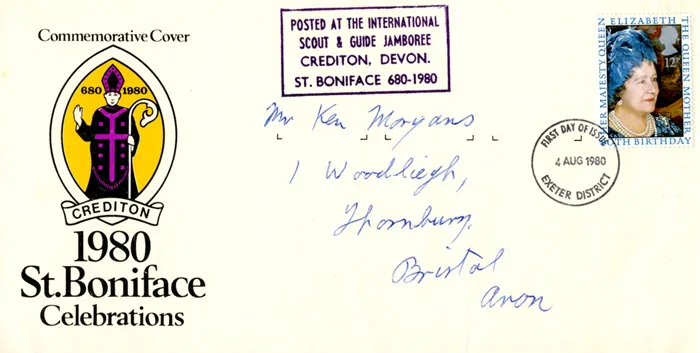 Commemorative Cover
680 1980
CREDITON
1980
St.Boniface
Celebrations
POSTED AT THE INTERNATIONAL
SCOUT & GUIDE JAMBOREE
CREDITON, DEVON.
ST. BONIFACE 680-1980
Mr Ken Morgans
1 Woodliegh,
Thornbury.
Bristol
Avon
FIRST DAY OF ISSUE
4 AUG 1980
EXETER DISTRICT
HER MAJESTY QUEEN
ELIZABETH
THE QUEEN MOTHER
80TH BIRTHDAY
12